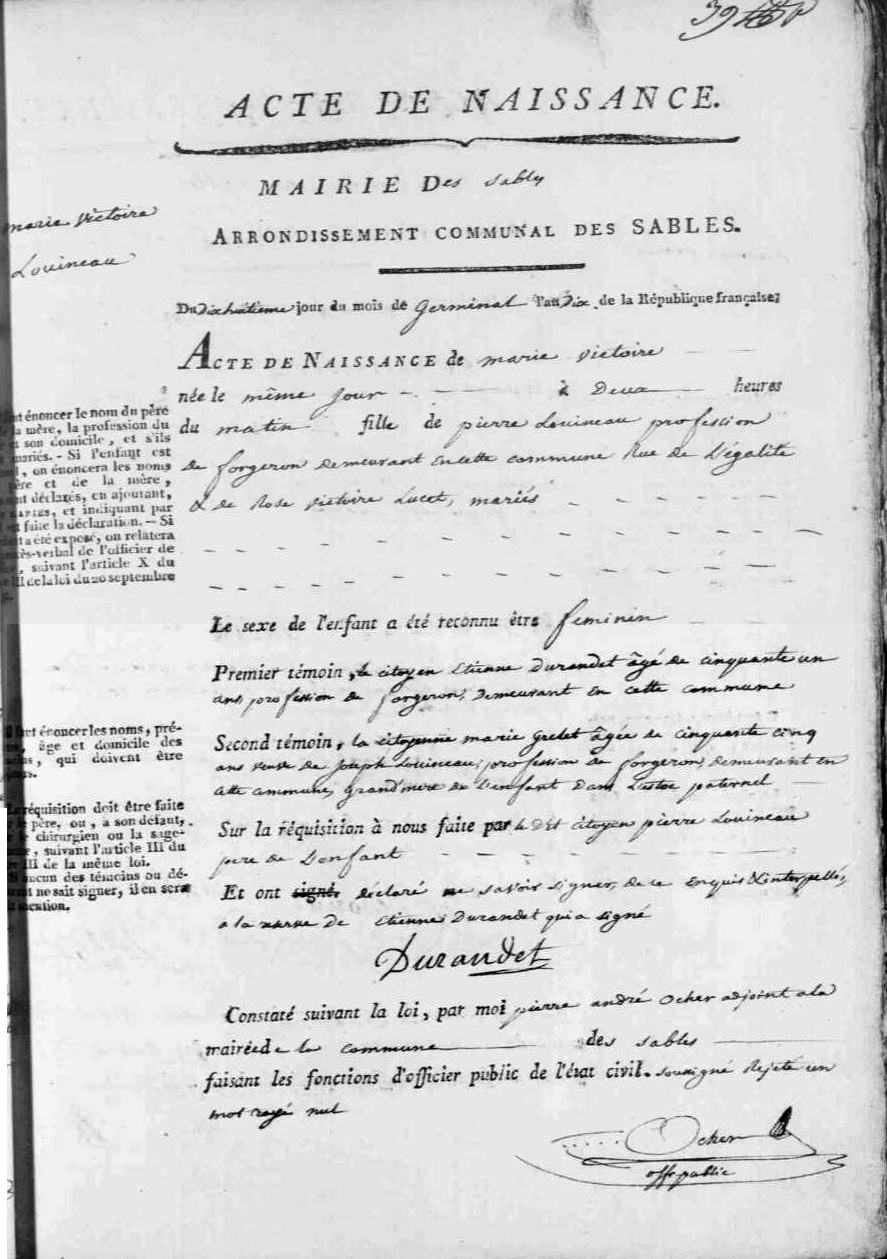 39
ACTE DE NAISSANCE.
MAIRIE Des Sables
ARRONDISSEMENT COMMUNAL DES SABLES.
marie Victoire
Louineau
Du Dixhuitieme jour du mois de Germinal l'an Dix de la République française
ACTE DE NAISSANCE de marie Victoire
née le même jour à Deux heures
du matin fille de pierre Louineau profession
de forgeron demeurant en cette commune Rue de L'égalité
& de Rose Victoire Lucet, mariés
énoncer le nom du père
la mère, la profession du
son domicile, et s'ils
mariés. - Si l'enfant est
, on énoncera les noms
père et de la mère,
déclarés, en ajoutant,
, et indiquant par
faite la déclaration. — Si
a été exposé, on relatera
-verbal de l'officier de
, suivant l'article X du
III de la loi du 20 septembre
Le sexe de l'enfant a été reconnu être feminin
Premier témoin, le citoyen Etienne Durandet âgé de cinquante un
ans profession de forgeron, demeurant en cette commune
énoncer les noms, pré-
, âge et domicile des
, qui doivent être
Second témoin, la citoyenne marie Grelet âgée de cinquante cinq
ans veuve de Joseph Louineau, profession de forgeron, demeurant en
cette commune, Grand'mere de L'enfant dans L'estoc paternel
réquisition doit être faite
père, ou, à son défaut,
chirurgien ou la sage-
, suivant l'article III du
III de la même loi.
aucun des témoins ou dé-
ne sait signer, il en sera
mention.
Sur la réquisition à nous faite par le dit citoyen pierre Louineau
pere de L'enfant
Et ont signé déclaré ne savoir signer, de ce Enquis & interpellés,
a la de Etienne Durandet qui a signé
Durandet
Constaté suivant la loi, par moi pierre andré Ocher adjoint a la
mairie de la commune des sables
faisant les fonctions d'officier public de l'état civil. soussigné Rejeté un
mot rayé nul
Ocher
offr public